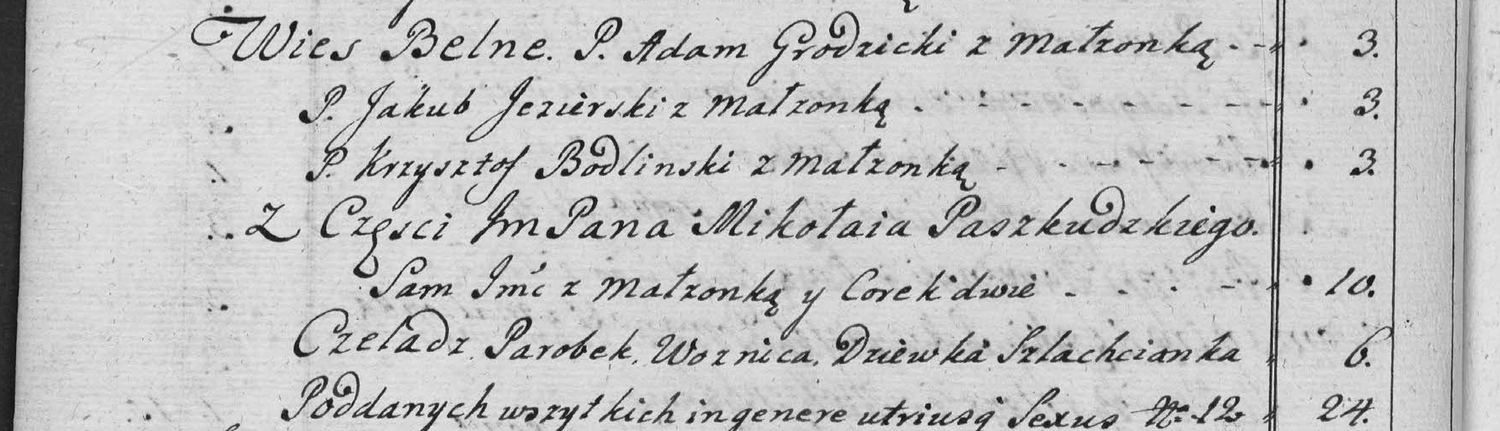 Wies Belne. P. Adam Grodzicki z Małzonką - - 3.
P. Jakub Jezierski z Małzonką - - - - - - - - 3.
P. Krzysztof Bodlinski z Małzonką - - - - - - - 3.
Z Częsci Jm Pana Mikołaia Paszkudzkiego.
Sam Jmć z Małzonką y Corek dwie - - - - 10.
Czeladz Parobek, Woznica, Dziewka Szlachcianka 6.
Poddanych wszytkich in genere utriusq Sexus No 12 24.